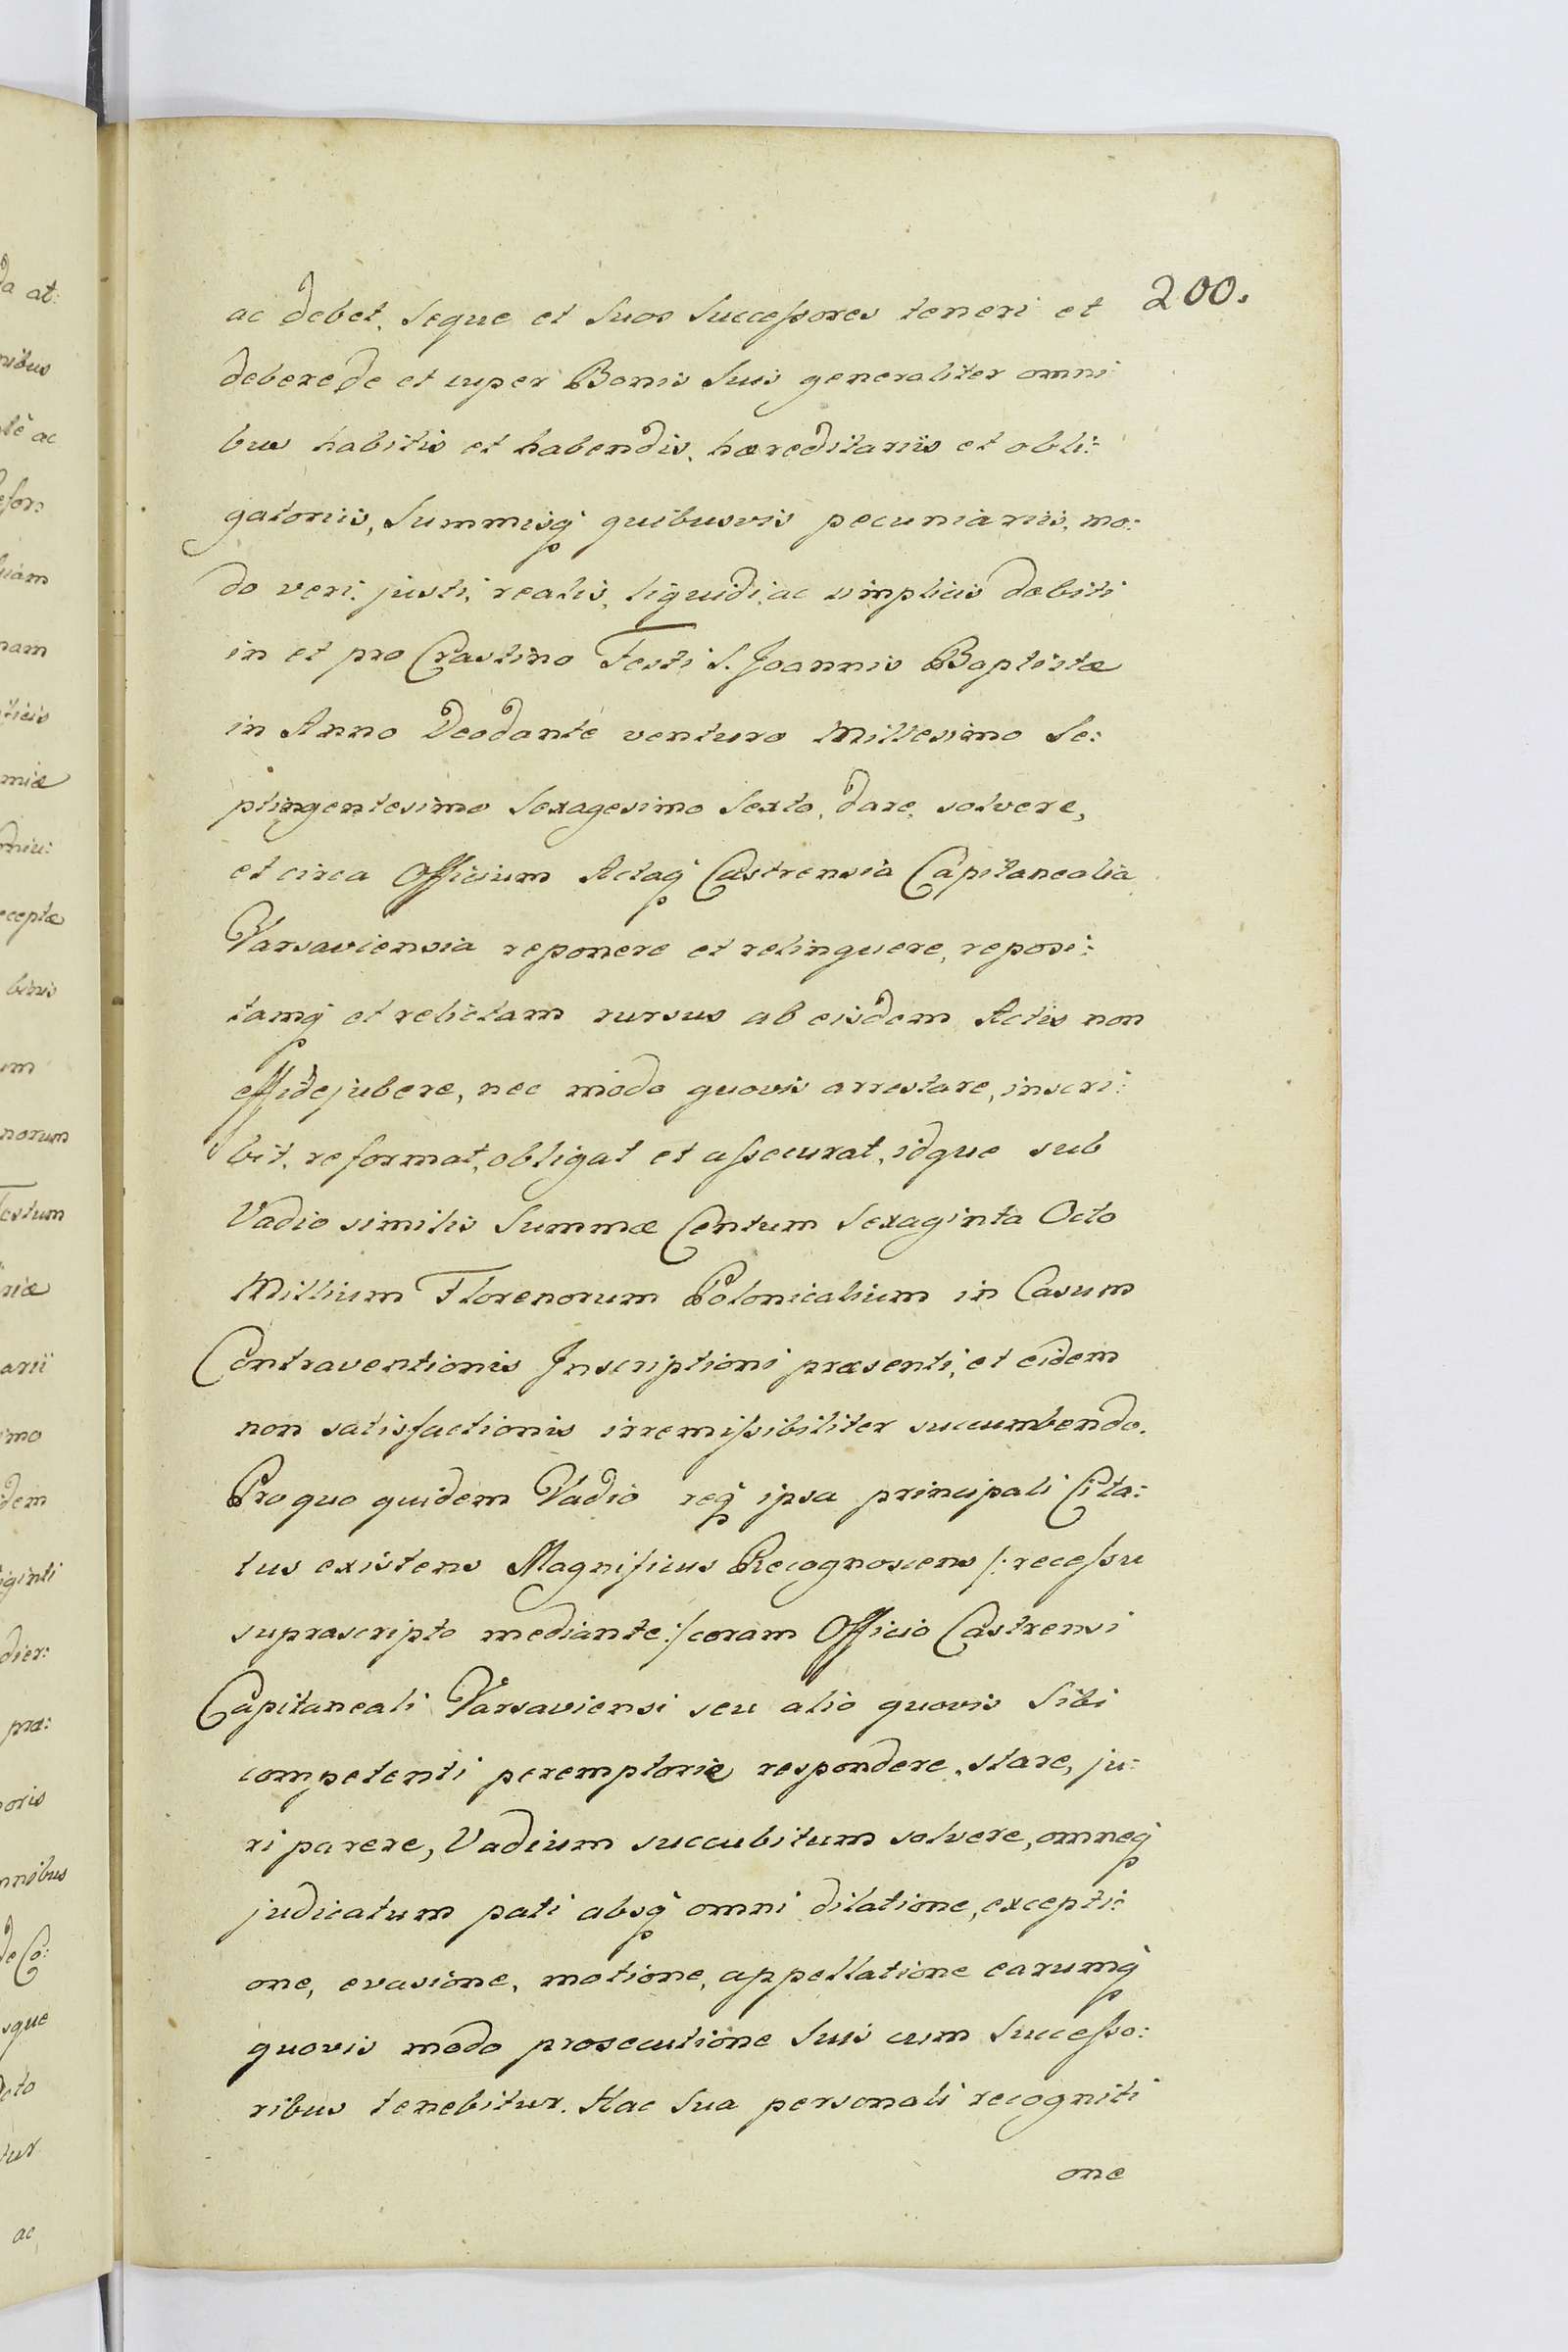 200.
ac debet, seque et Suos Successores teneri et
debere de et super Bonis Suis generaliter omni
bus habitis et habendis, hæreditariis et obli:
gatoriis, Summisq quibusvis pecuniariis, mo:
do veri, justi, realis, liquidi, ac simplicis dæbiti
in et pro Crastino Festi S. Joannis Baptistæ
in Anno Deodante venturo Millesimo Se:
ptingentesimo Sexagesimo Sexto, dare, solvere,
et circa Officium Actaq Castrensia Capitanealia
Varsaviensia reponere et relinquere, reposi:
tamq et relictam rursus ab eisdem Actis non
effidejubere, nec modo quovis arrestare, inscri:
bit, reformat, obligat et assecurat, idque sub
Vadio similis Summæ Centum Sexaginta Octo
Millium Florenorum Polonicalium in Casum
Contraventionis Inscriptioni præsenti, et eidem
non satisfactionis irremissibiliter succumbendo.
Pro quo quidem Vadio req ipsa principali Cita:
tus existens Magnificus Recognoscens /: recessu
suprascripto mediante :/ coram Officio Castrensi
Capitaneali Varsaviensi seu alio quovis Sibi
competenti peremptorie respondere, stare, ju:
ri parere, Vadium succubitum solvere, omneq
judicatum pati absq omni dilatione, excepti:
one, evasione, motione, appellatione earumq
quovis modo prosecutione Suis cum Successo:
ribus tenebitur. Hac Sua personali recogniti
one
da at:
nibus
tè ac
efor:
nam
ticis
miæ
eceptæ
binis
um
norum
Festum
riæ
arii
imo
idem
iginti
dier:
præ:
oris
nnibus
de Co:
sque
oto
tur
ac